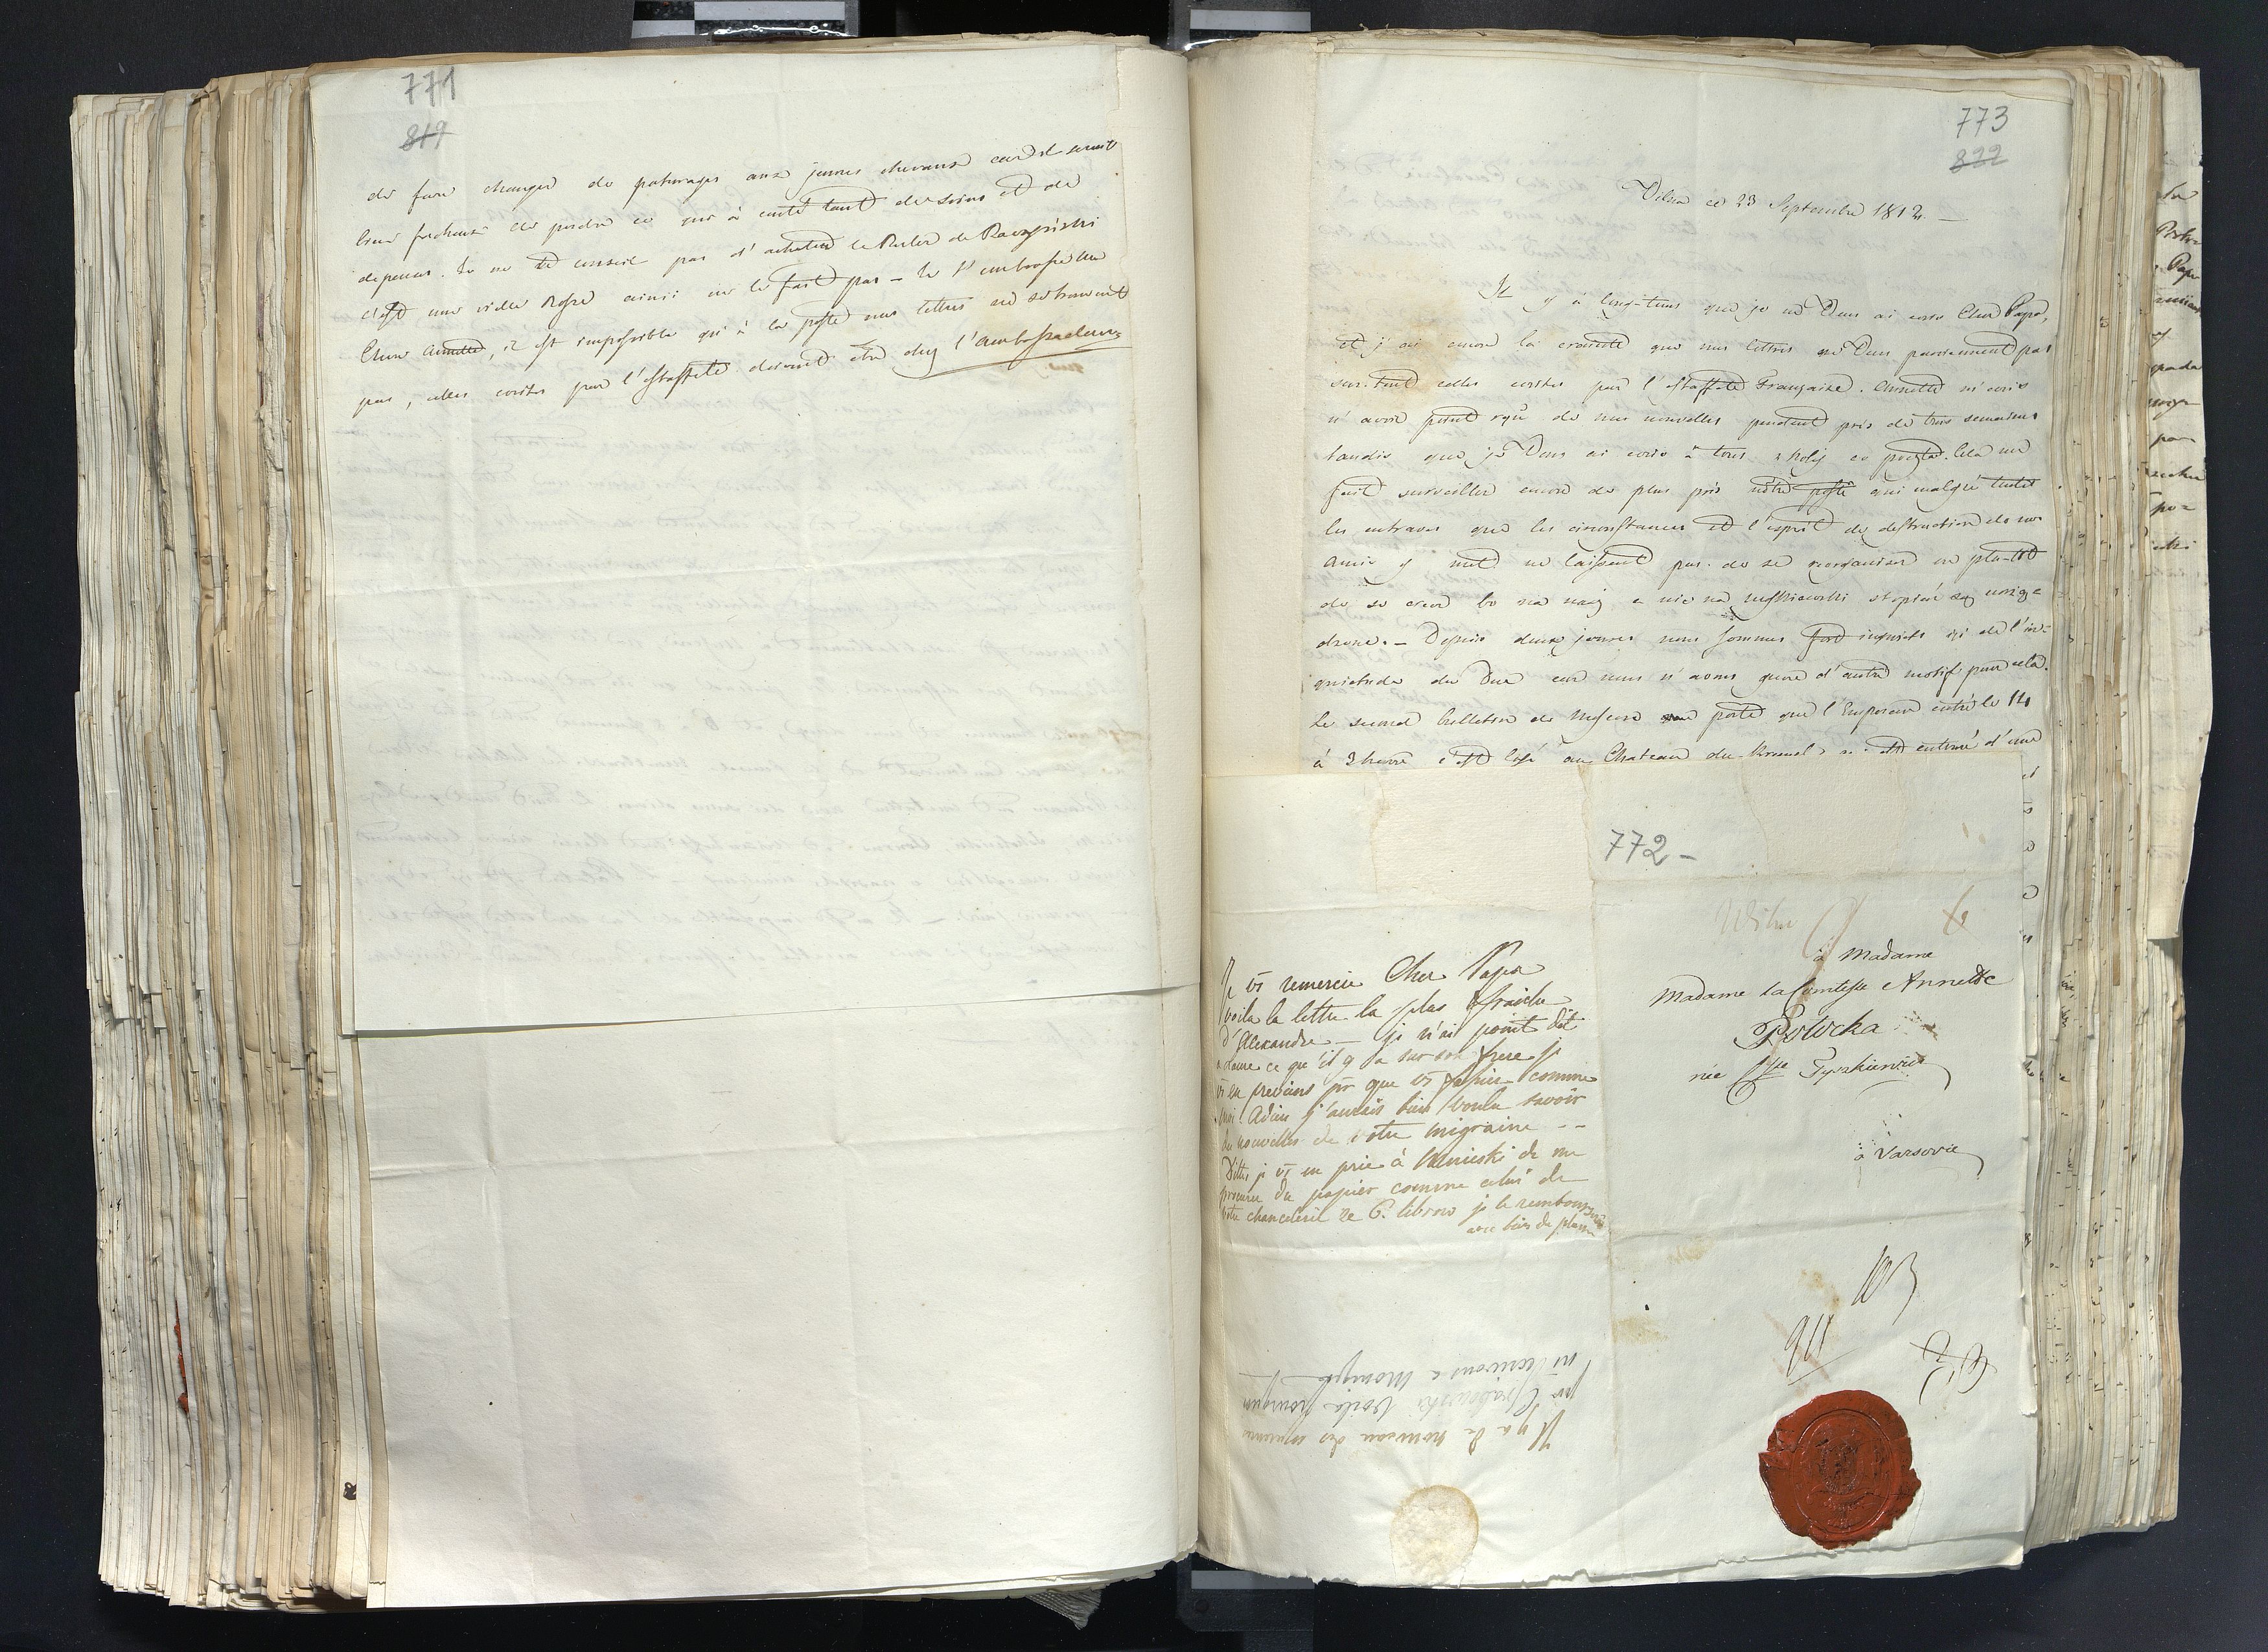 771
819
de faire changer de paturages aux jeunes chevaux car il serait
bien facheux de perdre ce qui à couté tant de soins et de
depenses. Je ne te conseil pas d'acheter le de Raczyński
c'est une vielle Rosse ainsi ne le fait pas – Je t'embrasse ma
Chere Annette, il est impossible qu'à la poste nos lettres ne se trouvent
pas, celles ecrites par l'estaffette doivent etre chez l'ambassadeur
773
822
Vilna ce 23 Septembre 1812. –
Il y à long-tems que je ne Vous ai ecris Cher Papa,
et j'ai encore la crainte que mes lettres ne Vous parviennent pas
sur-tout celles ecrites par l'estaffette Française. Annette m'ecris
n'avoir point reçu de mes nouvelles pendant près de trois semaines
tandis que je Vous ai ecris à tous ce poczta. Cela me
fait surveiller encore de plus près nôtre poste qui malgré toutes
les entraves que les circonstances et l'esprit de destruction de nos
amis y met ne laissent pas de se reorganiser ou plu-tôt
de se créer bo na naszej a nie na Moskiewski stopień są urzą-
dzone. – Depuis deux jours nous sommes fort inquiets ici de l'in-
quietude du Duc car nous n'avons guere d'autre motif pour cela.
Le second bulletin de Moscou porte que l'Empereur entré le 14
à 2 heures s'est logé au Chateau du Kremel, est entouré d'une
772 –
Wilna
à Madame
Madame la Comtesse Annette
Potocka
née Csse Tyszkiewicz
à Varsovie
Je vs remercie Cher Papa
voila la lettre la plus fraiche
d'Alexandre – je n'ai point dit
a ce qu'il y a sur son frere je
vs en previens pr que vs fassiez comme
moi! Adieu j'aurais bien voulu savoir
des nouvelles de votre migraine – –
Dittes je vs en prie à de me
procurer du papier comme celui de
votre chancelerie ze 6. librow je le rembourserai
avec bien du plaisir
Il y a de nouveau des
pr Grabowski voila pourquoi